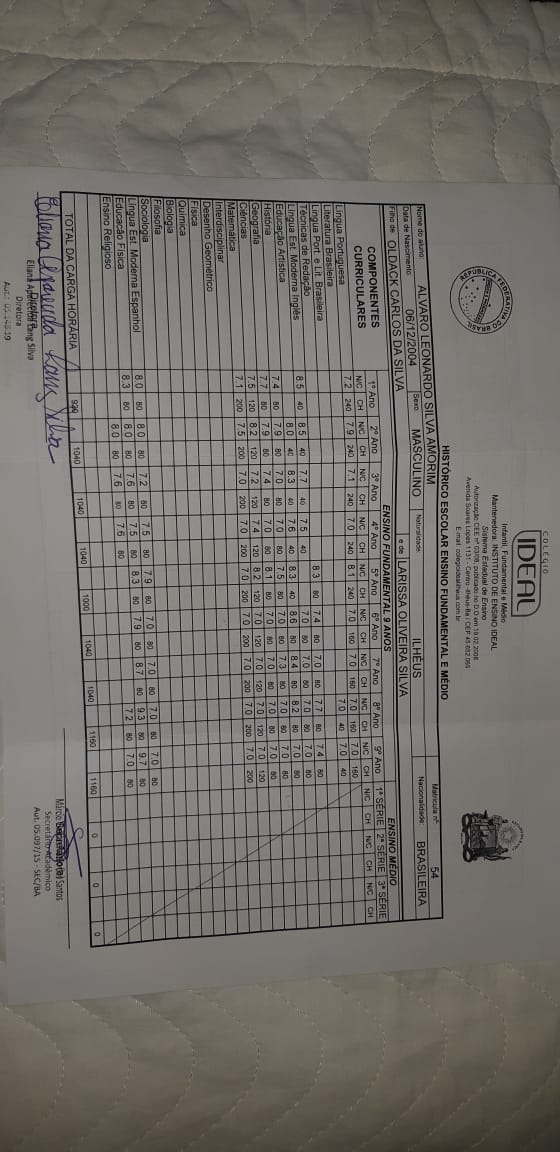 REPÚBLICA FEDERATIVA DO BRASIL
COLÉGIO
IDEAL
Infantil, Fundamental e Médio
Mantenedora: INSTITUTO DE ENSINO IDEAL
Sistema Estadual de Ensino
Avenida Soares Lopes 1131 - Centro -Ilhéus-Ba - CEP 45.652.065
HISTÓRICO ESCOLAR ENSINO FUNDAMENTAL E MÉDIO
Matricula nº: 54
Nome do aluno: ALVARO LEONARDO SILVA AMORIM
Data de Nascimento: 06/12/2004 Sexo: MASCULINO Naturalidade: ILHÉUS Nacionalidade: BRASILEIRA
Filho de: OLDACK CARLOS DA SILVA e de LARISSA OLIVEIRA SILVA
COMPONENTES CURRICULARES
ENSINO FUNDAMENTAL 9 ANOS
ENSINO MÉDIO
1º Ano 2º Ano 3º Ano 4º Ano 5º Ano 6º Ano 7º Ano 8º Ano 9º Ano 1ª SÉRIE 2ª SÉRIE 3ª SÉRIE
N/C CH N/C CH N/C CH N/C CH N/C CH N/C CH N/C CH N/C CH N/C CH N/C CH N/C CH N/C CH
Lingua Portuguesa 7.2 240 7.9 240 7.1 240 7.0 240 8.1 240 7.0 160 7.0 160 7.0 160 7.0 160
Literatura Brasileira 7.0 40 7.0 40
Lingua Port. e Lit. Brasileira
Técnicas de Redação 8.5 40 8.5 40 7.7 40 7.5 40 8.3 80 7.4 80 7.0 80 7.7 80 7.4 80
Lingua Est. Moderna Inglês 8.0 40 8.3 40 7.6 40 8.3 40
Educação Artistica 7.4 80 7.9 80 7.0 80 7.0 80 7.5 80
História 7.7 80 7.9 80 7.4 80 7.0 80 8.1 80
Geografia 7.5 120 8.2 120 7.2 120 7.4 120 8.2 120 7.0 120 7.0 120 7.0 120 7.0 120
Ciências 7.1 200 7.5 200 7.0 200 7.0 200 7.0 200 7.0 200 7.0 200 7.0 200 7.0 200
Matemática
Interdisciplinar
Desenho Geométrico
Física
Química
Biologia
Filosofia
Sociologia 7.0 80 7.0 80
Lingua Est. Moderna Espanhol 8.0 80 8.0 80 7.2 80 7.5 80 7.9 80
Educacão Física 8.3 80 8.0 80 7.6 80 7.5 80 8.3 80 7.9 80 8.7 80 9.3 80 9.7 80
Ensino Religioso 8.0 80 7.6 80 7.6 80 7.2 80 7.0 80
TOTAL DA CARGA HORÁRIA 920 1040 1040 1040 1000 1040 1040 1160 1160 0 0 0
Diretora
Secretário Acadêmico
Aut. 05.097/15 - SEC/BA